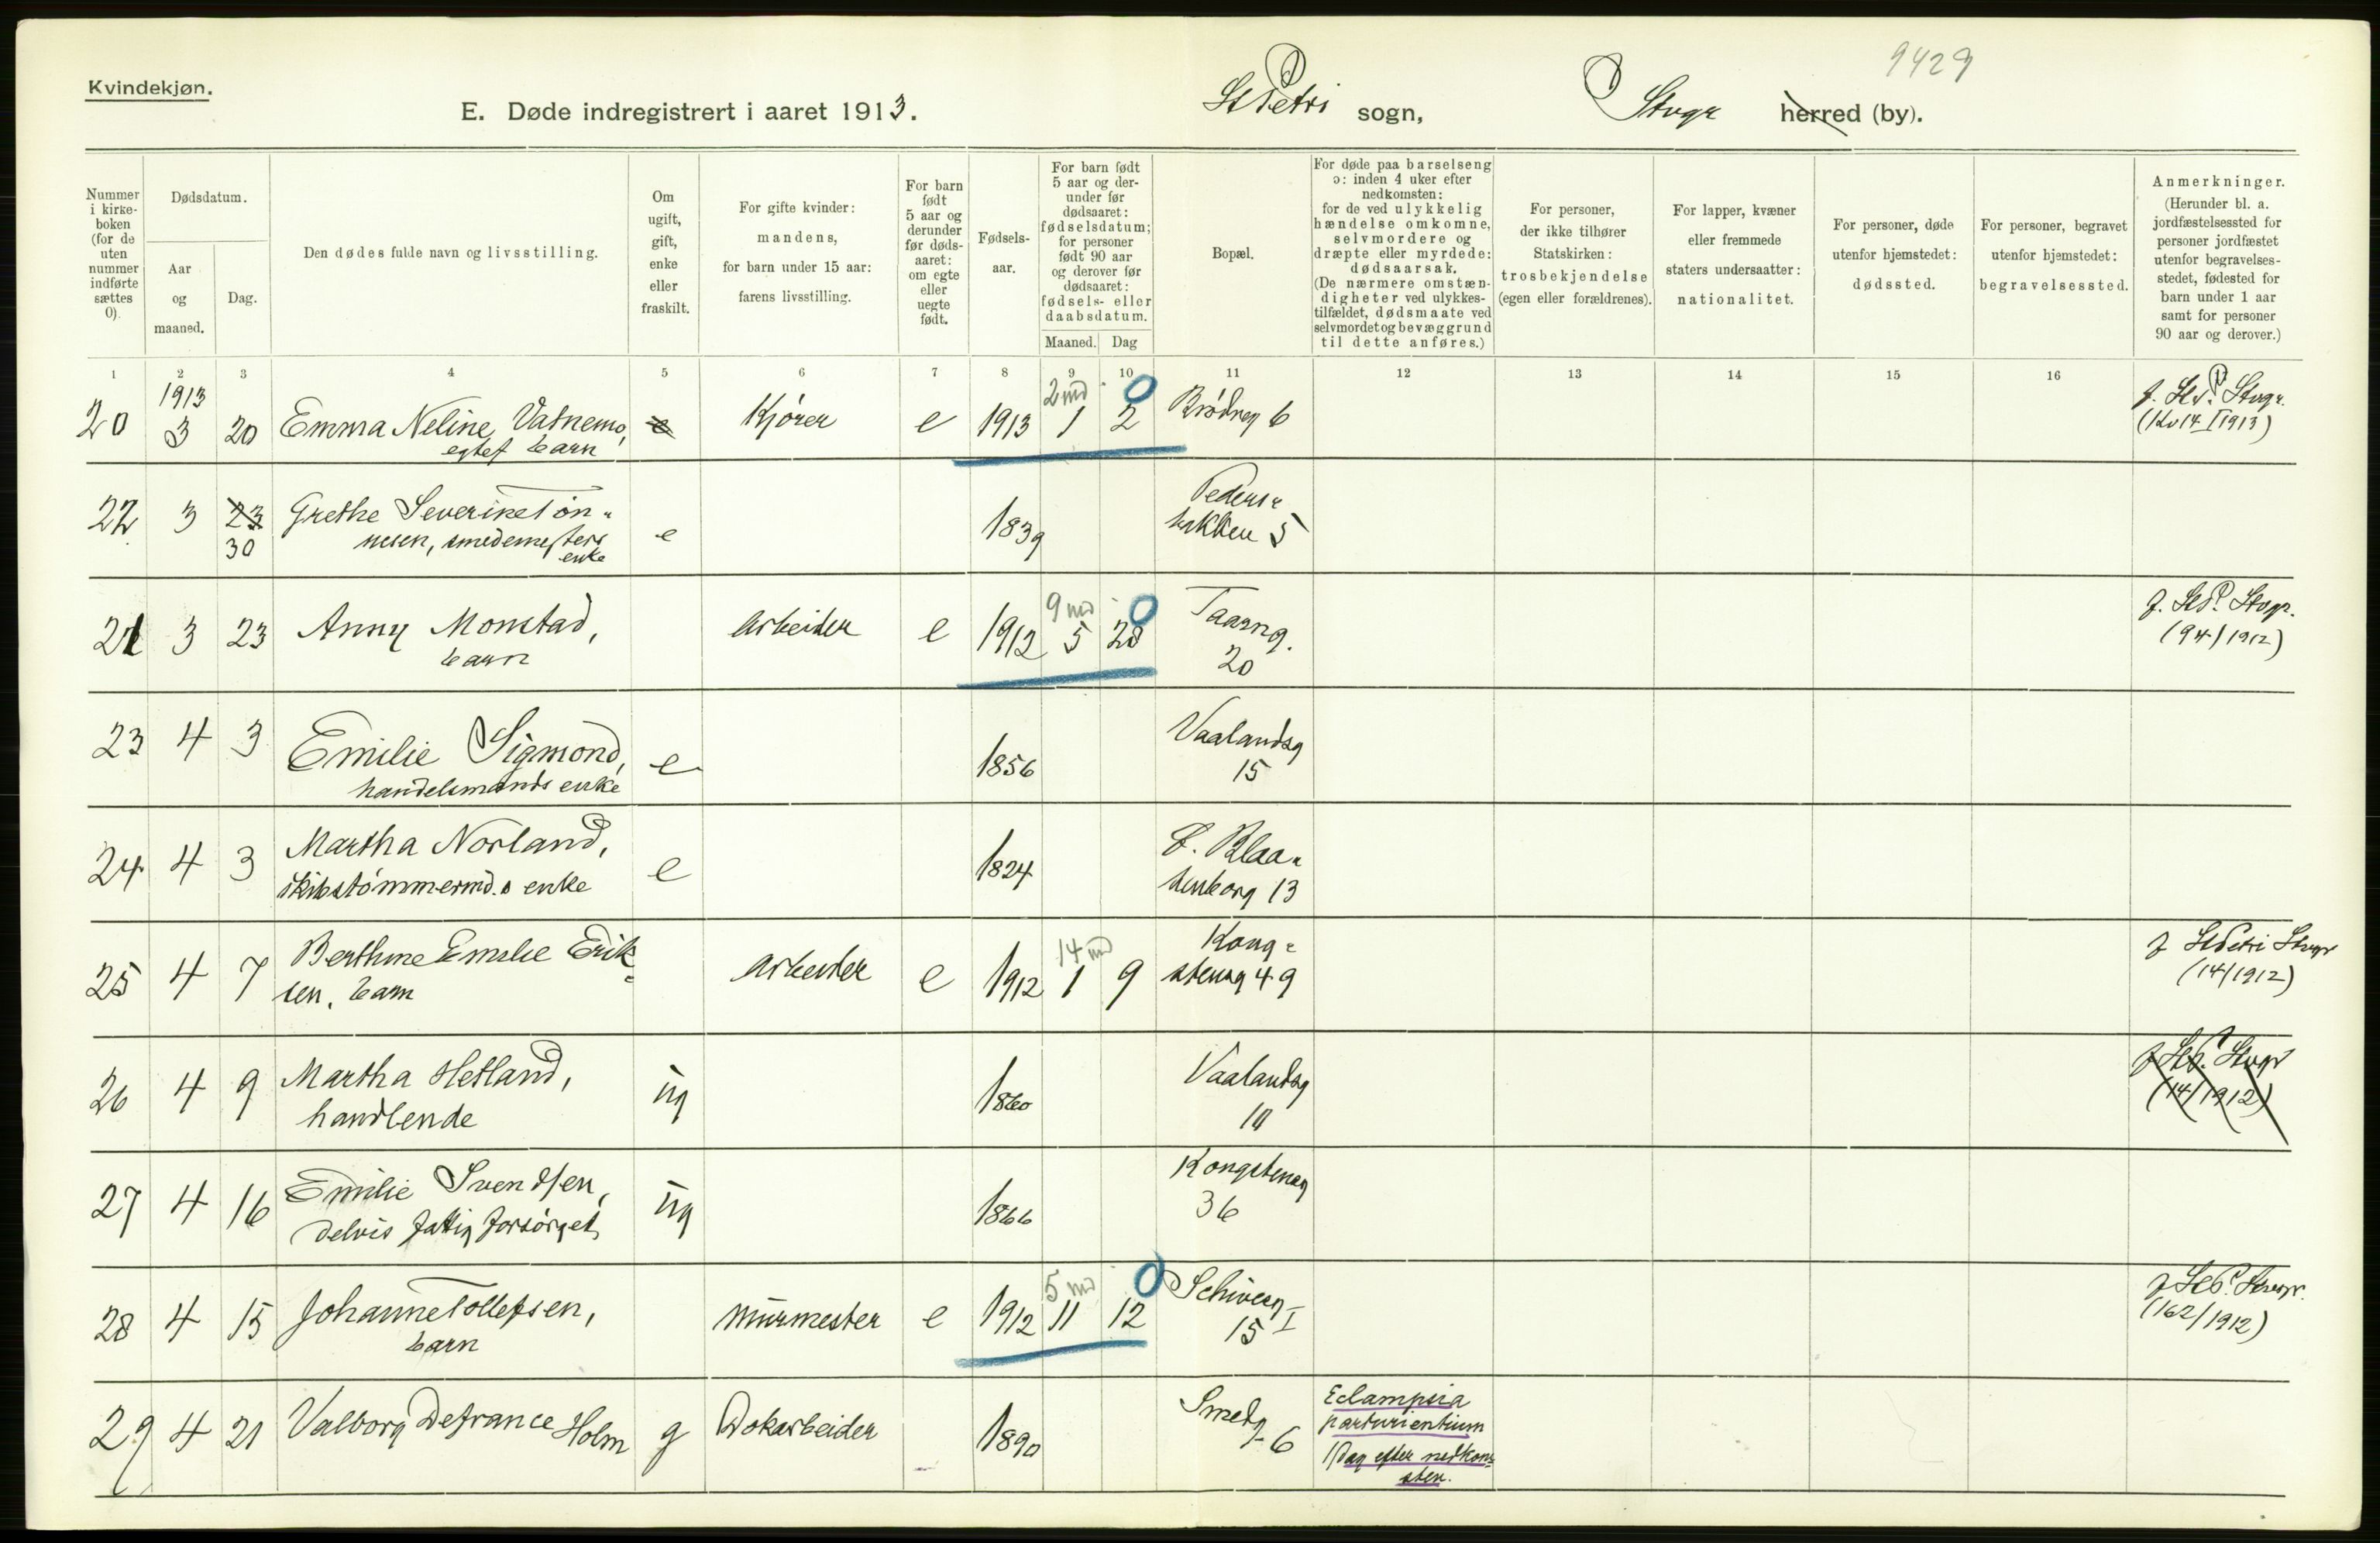 9429
Kvindekjøn.
E. Døde indregistrert i aaret 1913. St Petri sogn, Stvgr herred (by).
Nummer i kirke-boken (for de uten nummer indførte sættes 0).
Dødsdatum.
Aar og maaned.
Dag.
Den dødes fulde navn og livsstilling.
Om ugift, gift, enke eller fraskilt.
For gifte kvinder: mandens, for barn under 15 aar: farens livsstilling.
For barn født 5 aar og derunder før døds-aaret: om egte eller uegte født.
Fødsels-aar.
For barn født 5 aar og der-under før dødsaaret: fødselsdatum; for personer født 90 aar og derover før dødsaaret: fødsels- eller daabsdatum.
Maaned. Dag
Bopæl.
For døde paa barselseng ɔ: inden 4 uker efter nedkomsten: for de ved ulykkelig hændelse omkomne, selvmordere og dræpte eller myrdede: dødsaarsak. (De nærmere omstæn-digheter ved ulykkes-tilfældet, dødsmaate ved selvmordet og bevæggrund til dette anføres.)
For personer, der ikke tilhører Statskirken: trosbekjendelse (egen eller forældrenes).
For lapper, kvæner eller fremmede staters undersaatter: nationalitet.
For personer, døde utenfor hjemstedet: dødssted.
For personer, begravet utenfor hjemstedet: begravelsessted.
Anmerkninger. (Herunder bl. a. jordfæstelsessted for personer jordfæstet utenfor begravelses-stedet, fødested for barn under 1 aar samt for personer 90 aar og derover.)
1 2 3 4 5 6 7 8 9 10 11 12 13 14 15 16
1913 2 md 0
20 3 20 Emma Neline Vatnemo, e Kjører e 1913 1 2 Brødreg 6 f. St. P. Stvgr.
egtef barn (Kv 14 I 1913)
22 3 23 Grethe Severine Tøn- e 1839 Peders-
30 nesen, smedemesters bakken 5
enke
9 md 0
21 3 23 Anny Monstad, arbeider e 1912 5 28 Taarng. f. St P. Stvgr.
barn 20 (94/1912)
23 4 3 Emilie Sigmond, e 1856 Vaalandsg
handelsmands enke 15
24 4 3 Martha Norland, e 1824 Ø. Blaa-
skibstømmermd.s enke senborg 13
14 md
25 4 7 Berthine Emilie Erik- arbeider e 1912 1 9 Kong- f St Petri Stvgr
sen, barn stensg 49 (14/1912)
26 4 9 Martha Hetland, ug 1860 Vaalandsg f St P. Stvgr
handlende 10 (14/1912)
27 4 16 Emilie Svendsen, ug 1866 Kongstensg
delvis fattig forsørget 36
5 md 0
28 4 15 Johanne Tollefsen, murmester e 1912 11 12 Schiveg I f St P. Stvgr.
barn 15 (162/1912)
29 4 21 Valborg Defrance Holm g Dokarbeider 1890 Smedg 6 Eclampsia
parturientium
1 dag efter nedkom-
sten.